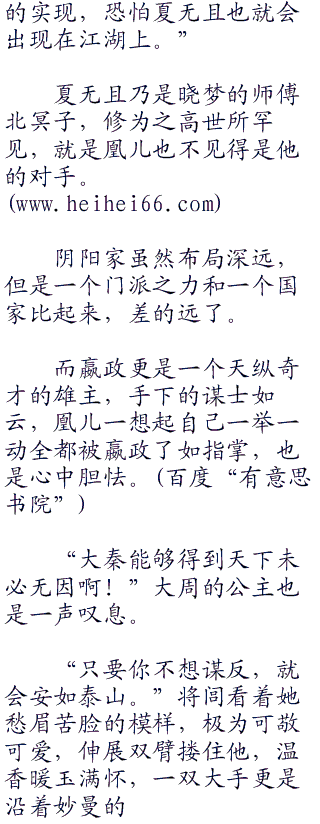 的实现，恐怕夏无且也就会
出现在江湖上。”
夏无且乃是晓梦的师傅
北冥子，修为之高世所罕
见，就是凰儿也不见得是他
的对手。
(www.heihei66.com)
阴阳家虽然布局深远，
但是一个门派之力和一个国
家比起来，差的远了。
而嬴政更是一个天纵奇
才的雄主，手下的谋士如
云，凰儿一想起自己一举一
动全都被嬴政了如指掌，也
是心中胆怯。(百度“有意思
书院”)
“大秦能够得到天下未
必无因啊！”大周的公主也
是一声叹息。
“只要你不想谋反，就
会安如泰山。”将闾看着她
愁眉苦脸的模样，极为可敬
可爱，伸展双臂搂住他，温
香暖玉满怀，一双大手更是
沿着妙曼的